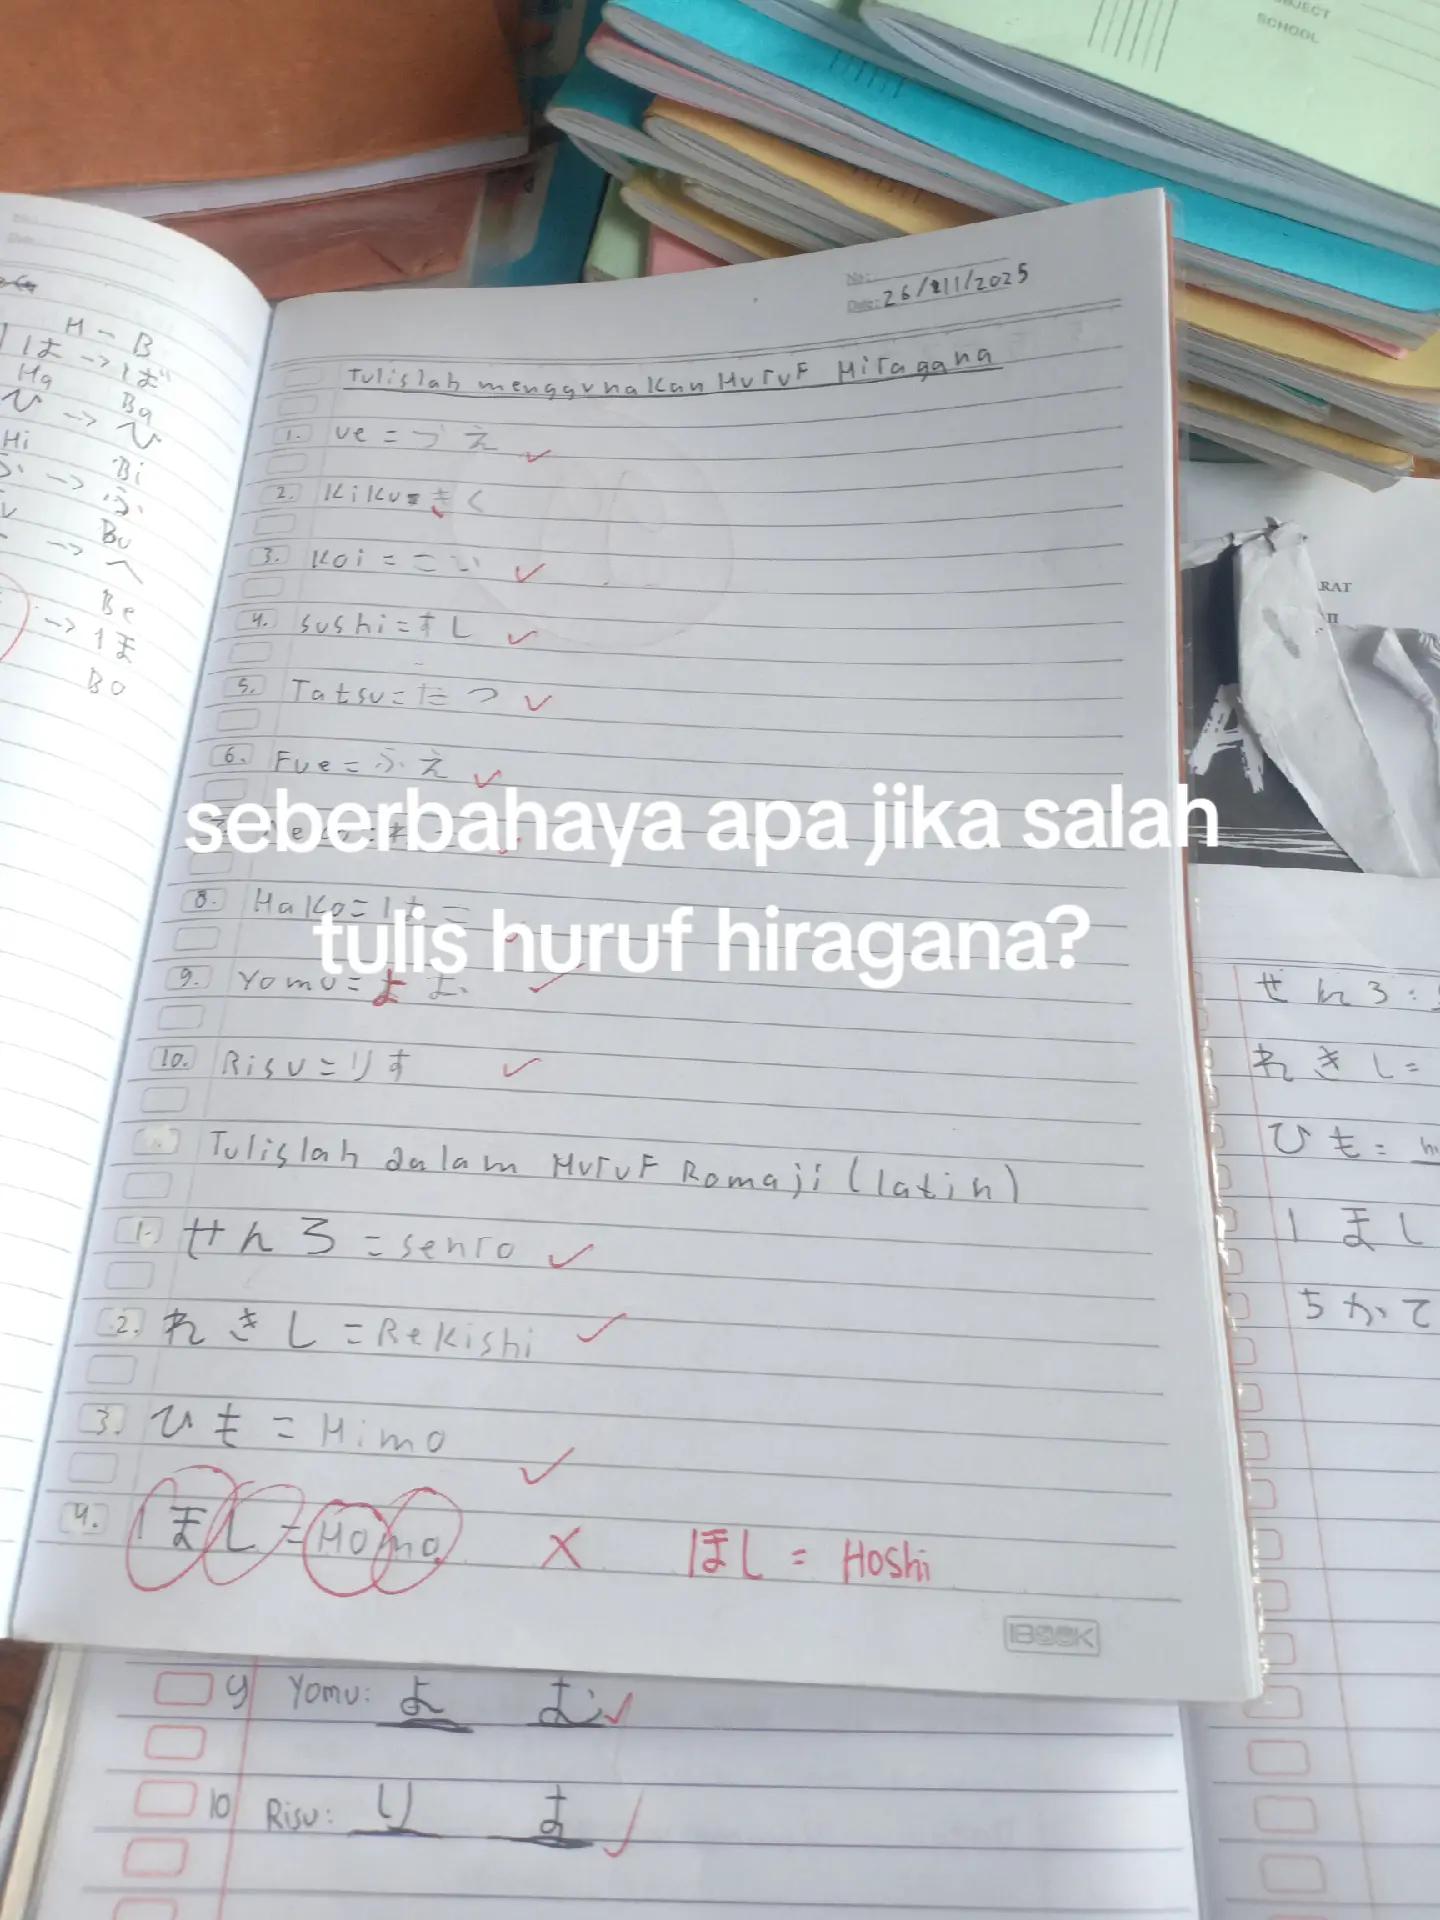 SUBJECT
SCHOOL
No:
Date: 26/11/2025
H - B
は -> ば
Ha Ba
ひ -> び
Hi Bi
Bu
Be
-> ほ
Bo
Tulislah menggunakan Huruf Hiragana
1. Ue = うえ
2. Kiku = きく
3. Koi = こい
4. Sushi = すし
5. Tatsu = たつ
6. Fue = ふえ
seberbahaya apa jika salah
tulis huruf hiragana?
8. Hako = はこ
9. Yomu = よむ
10. Risu = りす
Tulislah dalam Huruf Romaji (latin)
1. せんろ = senro
2. れきし = Rekishi
3. ひも = Himo
4. ほし = Homo X ほし = Hoshi
IBOOK
9 Yomu: よ む
10 Risu: り す
RAT
II
せんろ:
れきし=
ひも=
ほし
ちかて